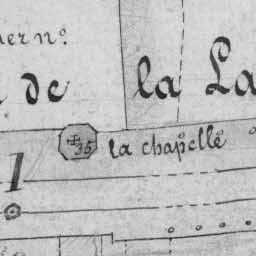 ner nº.
de la La
35 la chapelle
1